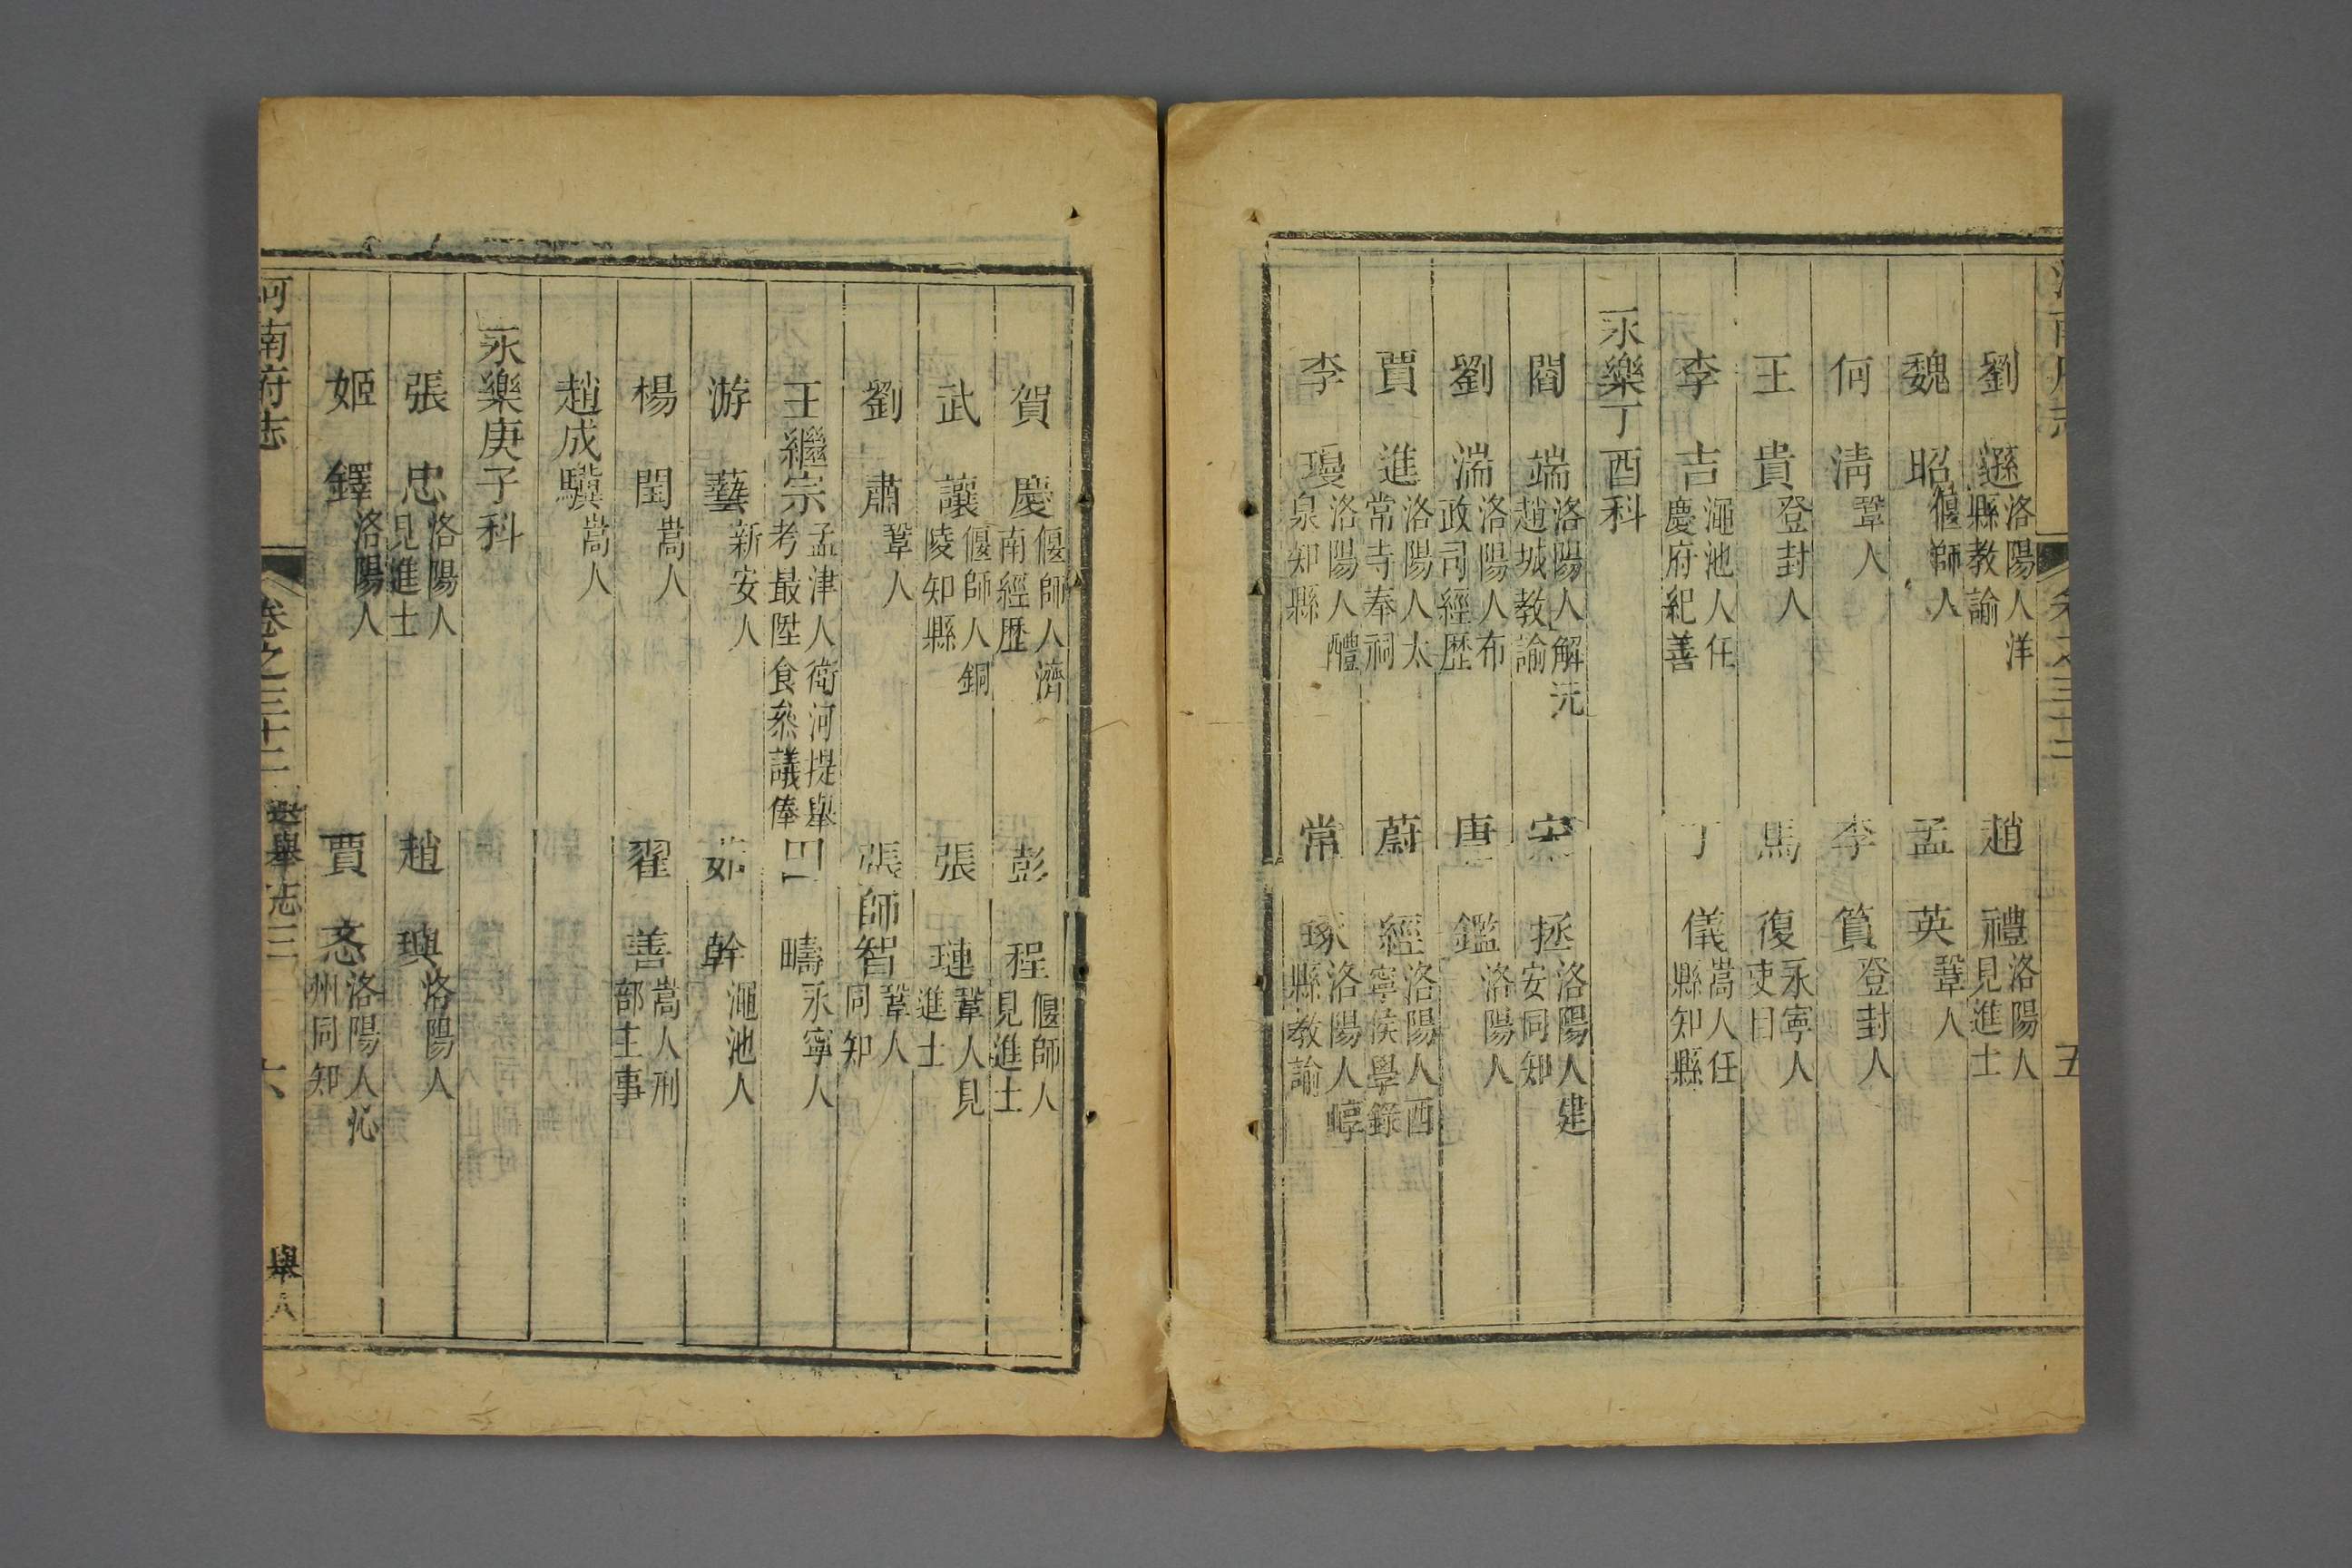 劉遜洛陽人洋縣教諭　趙禮洛陽人見進士
魏昭偃師人　孟英鞏人
何清鞏人　李篔登封人
王貴登封人　馬復永寧人吏目
李吉澠池人任慶府紀善　丁儀嵩人任縣知縣
永樂丁酉科
閻端洛陽人解元趙城教諭　宋拯洛陽人建安同知
劉湍洛陽人布政司經歷　唐鑑洛陽人
賈進洛陽人太常寺奉祠　蔚經洛陽人西寧侯學錄
李瓊洛陽人醴泉知縣　常琢洛陽人崞縣教諭
賀慶偃師人濟南經歷　彭程偃師人見進士
武讓偃師人銅陵知縣　張璉鞏人見進士
劉肅鞏人　張師智鞏人同知
王繼宗孟津人衛河提舉考最陞食叅議俸　疇永寧人
游藝新安人　茹幹澠池人
楊閏嵩人　翟善嵩人刑部主事
趙成驥嵩人
永樂庚子科
張忠洛陽人見進士　趙璵洛陽人
姬鐸洛陽人　賈忞洛陽人沁州同知
河南府志　卷之三十二　選舉志三　六　舉人